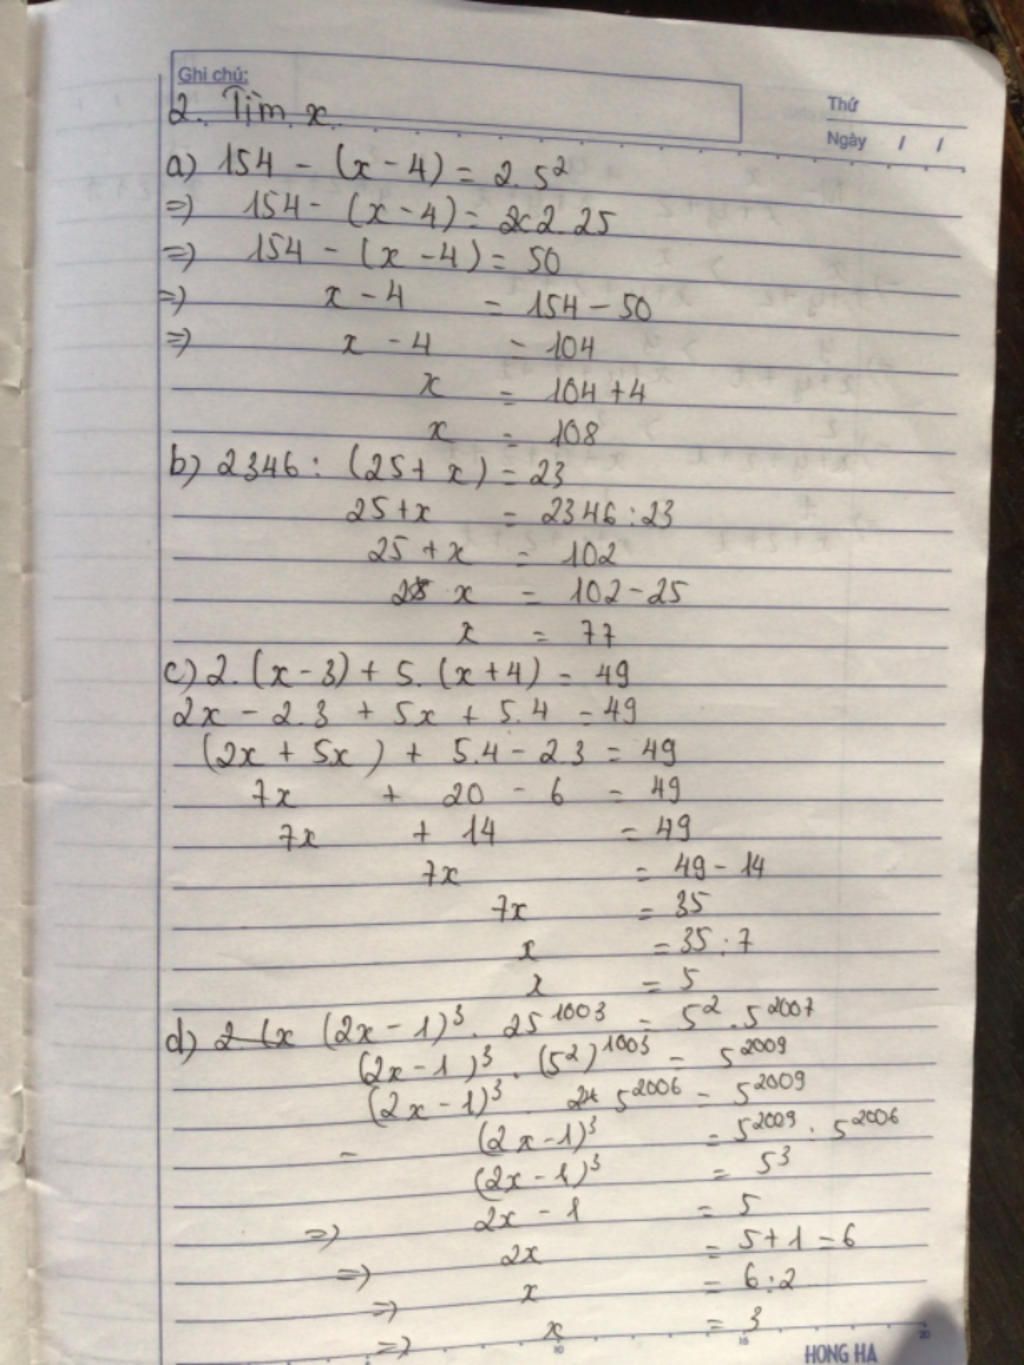 Ghi chú:
Thứ
Ngày / /
2. Tìm x
a) 154 - (x - 4) = 2.5²
=> 154 - (x - 4) = 2.25
=> 154 - (x - 4) = 50
=> x - 4 = 154 - 50
=> x - 4 = 104
x = 104 + 4
x = 108
b) 2346 : (25 + x) = 23
25 + x = 2346 : 23
25 + x = 102
x = 102 - 25
x = 77
c) 2.(x - 3) + 5.(x + 4) = 49
2x - 2.3 + 5x + 5.4 = 49
(2x + 5x) + 5.4 - 2.3 = 49
7x + 20 - 6 = 49
7x + 14 = 49
7x = 49 - 14
7x = 35
x = 35 : 7
x = 5
d) (2x - 1)³ . 25¹⁰⁰³ = 5² . 5²⁰⁰⁷
(2x - 1)³ . (5²)¹⁰⁰³ = 5²⁰⁰⁹
(2x - 1)³ . 5²⁰⁰⁶ = 5²⁰⁰⁹
(2x - 1)³ = 5²⁰⁰⁹ : 5²⁰⁰⁶
(2x - 1)³ = 5³
=> 2x - 1 = 5
=> 2x = 5 + 1 = 6
=> x = 6 : 2
=> x = 3
10 15 20
HONG HA